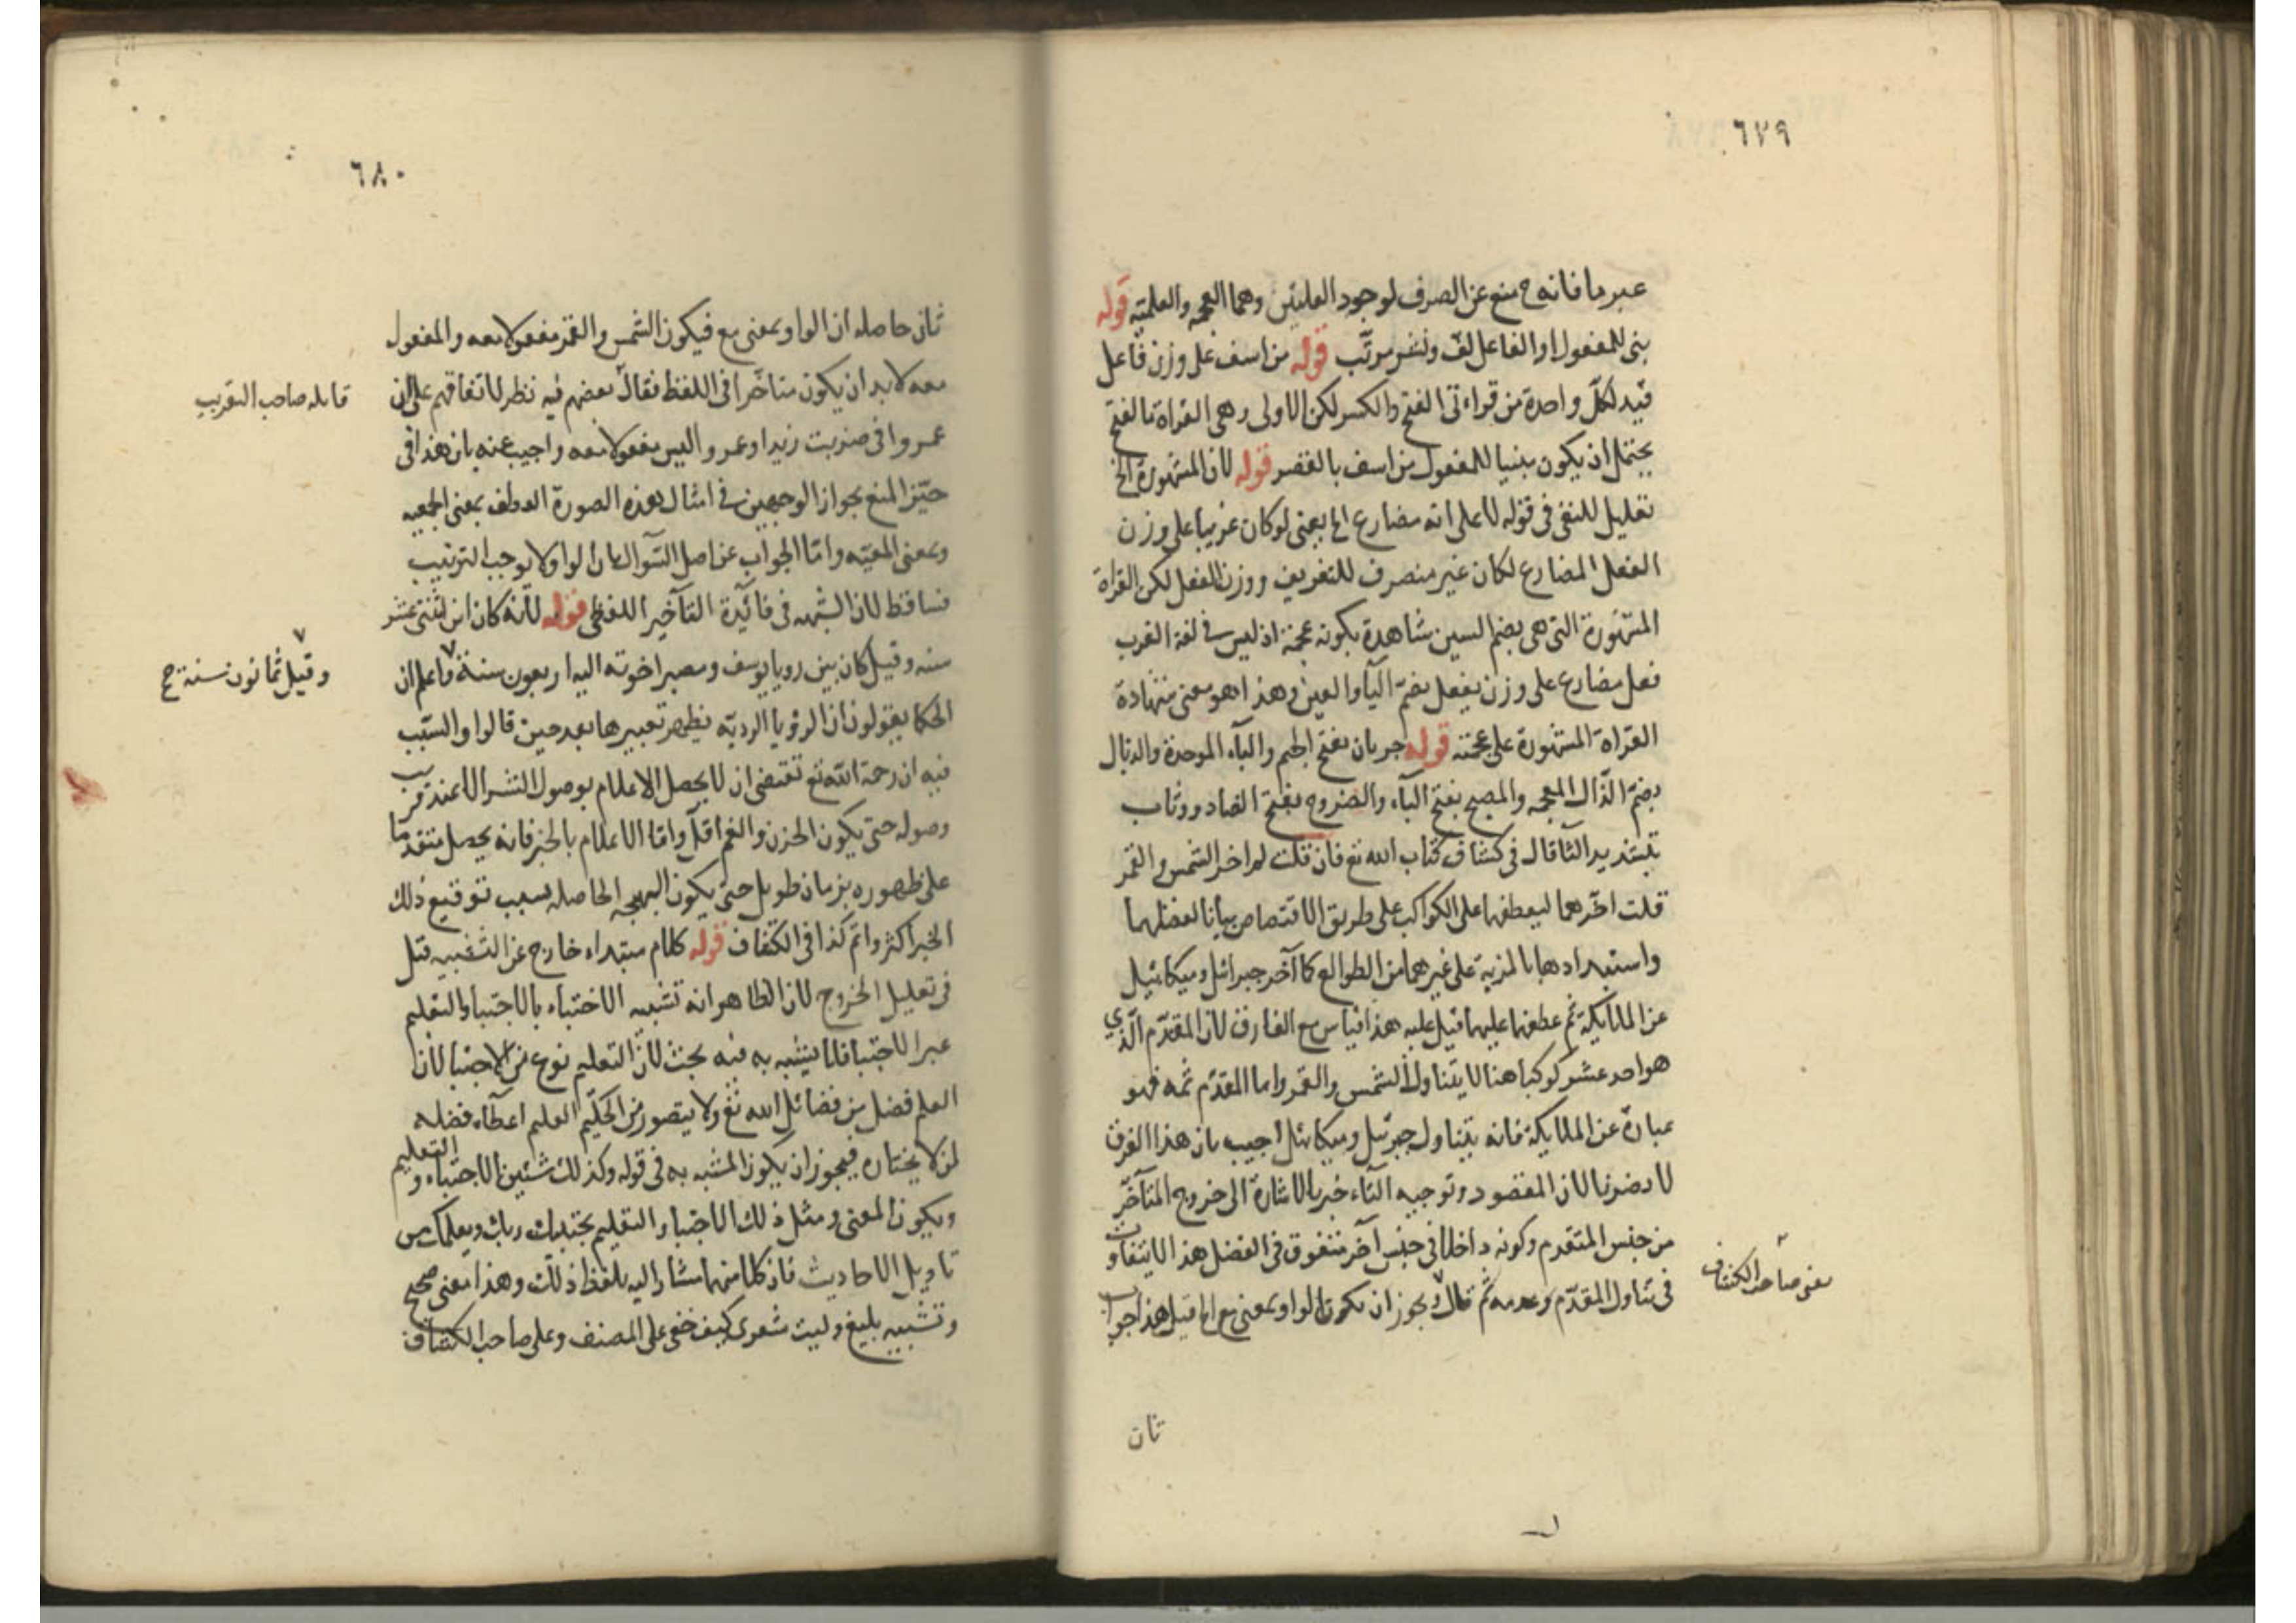 ٦٧٩
عبريا فانه ح منع عن الصرف لوجود العلتين وهما العجمه والعلميه قوله
بنى للمفعول او الفاعل لف ونشر مرتب قوله من اسف على وزن فاعل
قيد لكل واحدة من قراءتى الفتح والكسر لكن الاولى وهى القراة بالفتح
يحتمل ان يكون مبنيا للمفعول من اسف بالقصر قوله لان المشهورة الخ
تعليل للنفى فى قوله لا على انه مضارع الخ يعنى لو كان عربيا على وزن
الفعل المضارع لكان غير منصرف للتعريف ووزن الفعل لكن القراة
المشهورة التى هى بضم السين شاهدة بكونه عجمة اذ ليس فى لغة العرب
فعل مضارع على وزن يفعل بضم اليآ والعين وهذا هو معنى شهادة
القراة المشهورة على عجمته قوله جربان بفتح الجيم والبآء الموحدة والذيال
بضم الذال المعجمه والمصبح بفتح البآء والضروح بفتح الضاد ووثاب
بتشديد الثا قال فى كشاف كتاب الله تع فان قلت لم اخر الشمس والقمر
قلت اخرهما ليعطفهما على الكواكب على طريق الاختصاص بيانا لفضلهما
واستبدادهما بالمزية على غيرهما من الطوالع كما آخر جبرائل وميكائيل
عن الملايكة ثم عطفهما عليها قيل عليه هذا قياس مع الفارق لان المقدم الذي
هو احد عشر كوكبا هنا لا يتناول الشمس والقمر واما المقدم ثمه فهو
عبارة عن الملايكة فانه يتناول جبرئيل وميكائل اجيب بان هذا الفرق
لا يضرنا لان المقصود وتوجيه التآء خير بالاشارة الى خروج المتآخر
من جنس المتقدم وكونه داخلا فى جنس آخر متفوق فى الفضل هذا لا يتفاوت
يعنى صاحب الكشاف
فى تناول المقدم وعدمه ثم قال ويجوز ان يكون الواو بمعنى مع الخ قيل هذا جواب
ثان
٦٨٠
ثان حاصله ان الواو بمعنى مع فيكون الشمس والقمر مفعولا معه والمفعول
معه لا بد ان يكون متاخرا فى اللفظ فقال بعضهم فيه نظر لاتفاقهم على ان
قايله صاحب التقريب
عمروا فى ضربت زيدا وعمروا ليس مفعولا معه واجيب عنه بان هذا فى
حيز المنع بجواز الوجهين فى امثال هذه الصورة العطف بمعنى الجمعيه
وبمعنى المعيه واما الجواب عن اصل السوال بان الواو لا يوجب الترتيب
فساقط لان الشبهه فى فائدة التآخير اللفظى قوله لانه كان ابن اثنتى عشر
سنه وقيل كان بين رويا يوسف ومصير اخوته اليه اربعون سنة واعلم ان
وقيل ثمانون سنة صح
الحكما يقولون ان الرؤيا الرديه يظهر تعبيرها بعد حين قالوا والسبب
فيه ان رحمة الله تع تقتضى ان لا يحصل الاعلام بوصول الشر الا عند قرب
وصوله حتى يكون الحزن والغم اقل واما الاعلام بالخير فانه يحصل متقدما
على ظهوره بزمان طويل حتى يكون البهجه الحاصله بسبب توقيع ذلك
الخير اكثر واتم كذا فى الكشاف قوله كلام مبتداء خارج عن التشبيه قيل
فى تعليل الخروج لان الظاهر انه تشبيه الاختباء بالاجتبا والتعليم
غير الاجتبا فلا يشبه به فيه بحث لان التعليم نوع من الاجتبا لان
العلم فضل من فضائل الله تع ولا يتصور من الحكيم العليم اعطآء فضله
لمن لا يختاره فيجوز ان يكون المشبه به فى قوله وكذلك شئين الاجتباء والتعليم
ويكون المعنى ومثل ذلك الاجتبا والتعليم يجتبيك ربك ويعلمك من
تاويل الاحاديث فان كلا منهما مشارا اليه بلفظ ذلك وهذا معنى صحيح
وتشبيه بليغ وليت شعرى كيف خفى على المصنف وعلى صاحب الكشاف